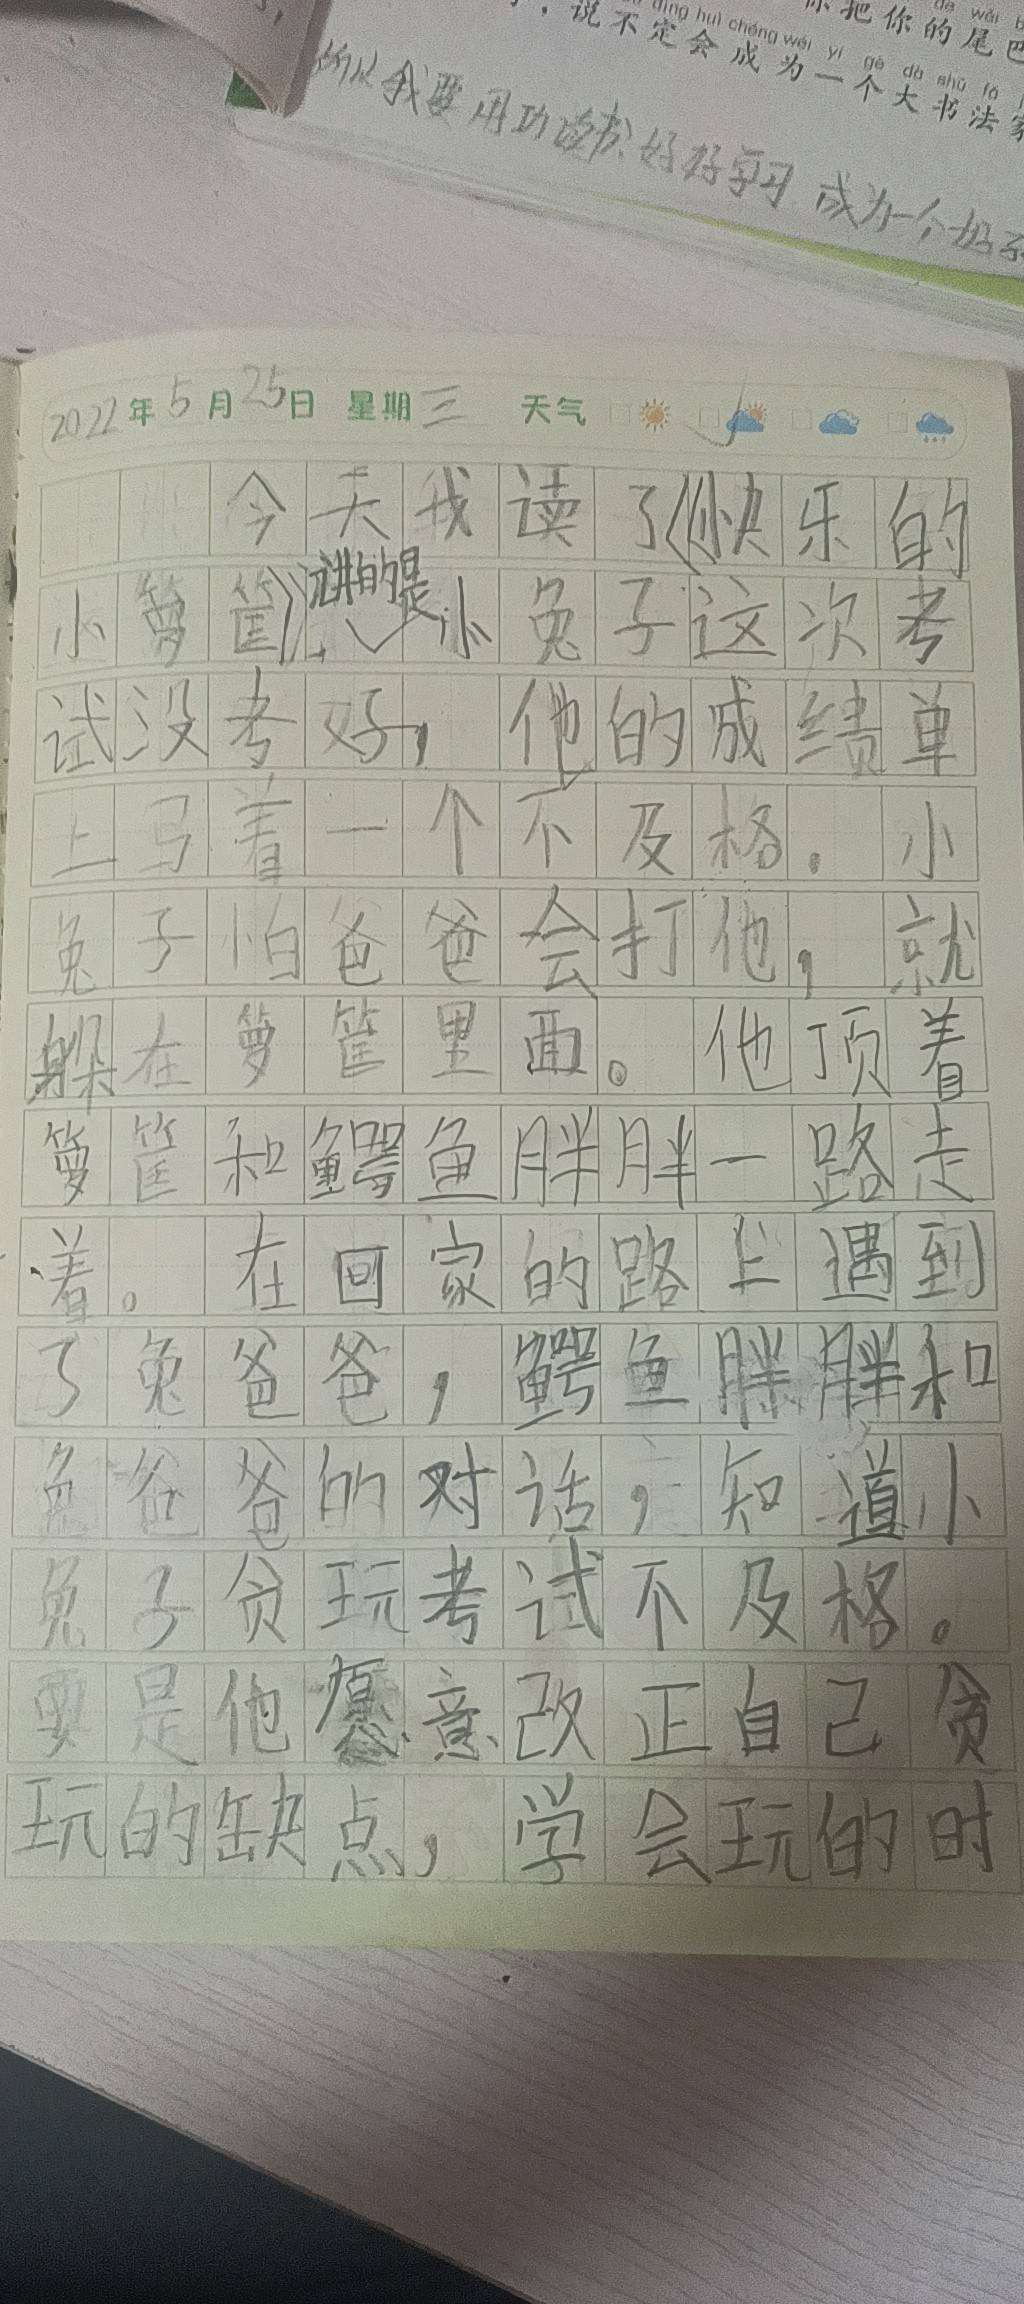 你把你的尾巴
说不定会成为一个大书法家
所以我要用功读书好好学习 成为一个好子
2022年5月25日 星期三 天气
今天我读了《快乐的
小箩筐》,讲的是小兔子这次考
试没考好,他的成绩单
上写着一个不及格。小
兔子怕爸爸会打他,就
躲在箩筐里面。他顶着
箩筐和鳄鱼胖胖一路走
着。在回家的路上遇到
了兔爸爸,鳄鱼胖胖和
兔爸爸的对话,知道小
兔子贪玩考试不及格。
要是他愿意改正自己贪
玩的缺点,学会玩的时